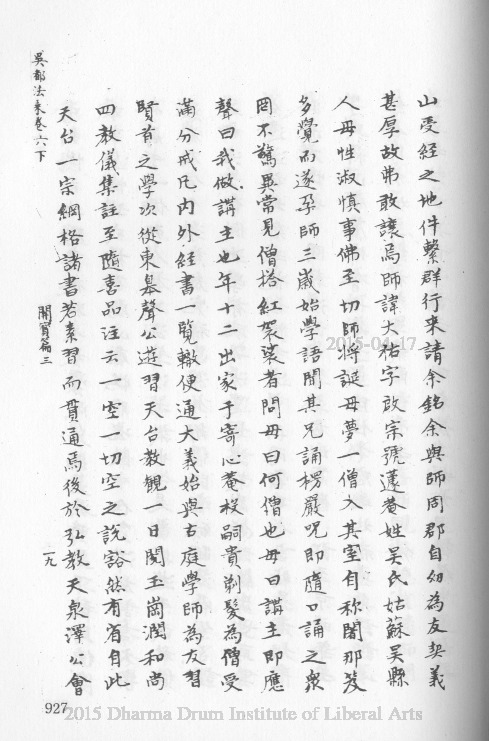 山受經之地件繫群行來請余銘余與師同郡自幼為友契義
甚厚故弗敢讓焉師諱大祐字啟宗號蘧菴姓吳氏姑蘇吳縣
人母性淑慎事佛至切師將誕母夢一僧入其室自称闍那笈
多覺而遂孕師三歲始學語聞其兄誦楞嚴呪即隨口誦之衆
罔不驚異常見僧搭紅袈裟者問母曰何僧也母曰講主即應
聲曰我做講主也年十二出家于寄心菴授嗣貴剃髮為僧受
滿分戒凡內外經書一覽輙便通大義始與古庭學師為友習
賢首之學次從東皋聲公遊習天台教觀一日閱玉崗潤和尚
四教儀集註至隨喜品注云一空一切空之說豁然有省自此
天台一宗綱格諸書若素習而貫通焉後於弘教天泉澤公會
吳都法乘卷六下
開寶篇三
一九
927
2015-04-17
2015 Dharma Drum Institute of Liberal Arts